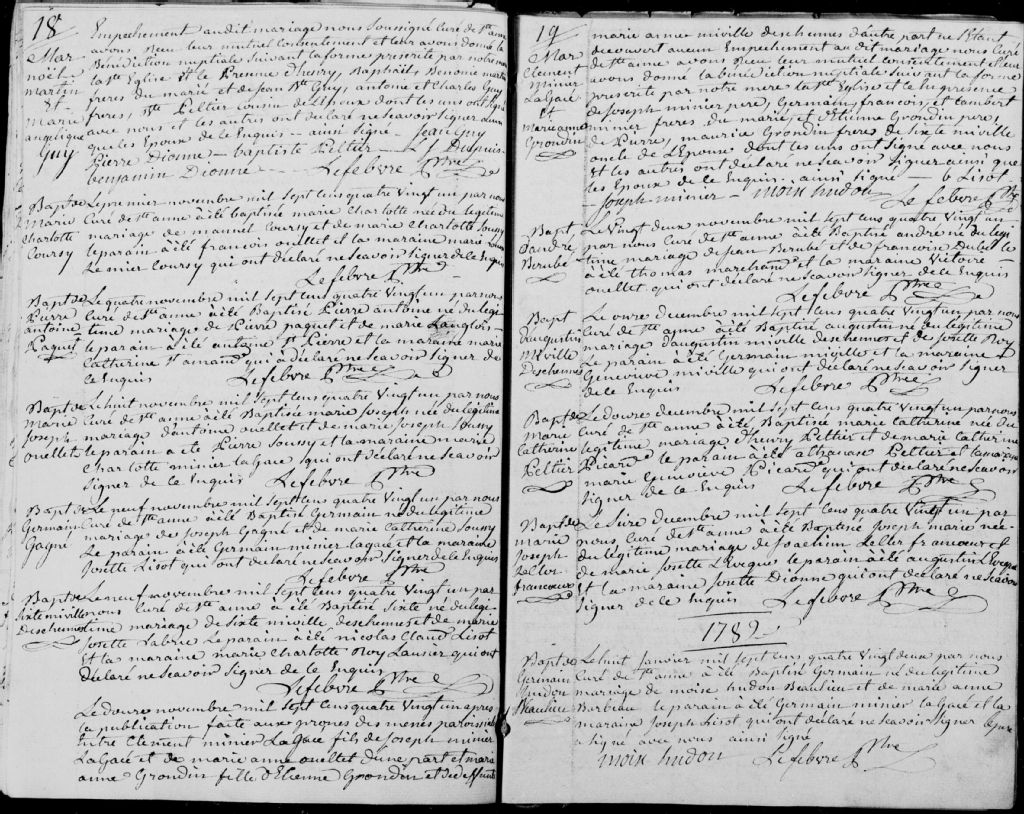 18e
Mar
noël
martin
Et
marie
angelique
Guy
Empechement audit mariage nous Soussigné Curé de Ste anne
avons Reçu leur mutuel Consentement et leur avons donné la
Benediction nuptiale Suivant la forme prescrite par notre mere
la Ste Eglise Et le presence d'henry, Baptiste, Benomie martin
freres du marié et de jean Bte Guy, antoine et Charles Guy
freres, Bte Peltier cousin de L'Epoux dont les uns ont signé
avec nous et les autres ont declaré ne Scavoir Signer ainsi
que les Epoux de le Enquis — ainsi Signé — Jean Guy
Pierre Dionne — baptiste Peltier — L J Dupuis
benjamin Dionne — Lefebvre Ptre
Bapt de
Marie
Charlotte
Coursy
Le premier novembre mil Sept Cens quatre Vingt un par nous
Curé de Ste anne à été baptisé marie Charlotte né du legitime
mariage de manuel Coursy et de marie Charlotte Soussy
le parain à été francois ouellet Et la maraine marie
Le mier Coursy qui ont declaré ne Scavoir Signer de le Enquis
Lefebvre Ptre
Bapt de
Pierre
antoine
Paquet
Le quatre novembre mil Sept Cens quatre Vingt un par nous
Curé de Ste anne à été Baptisé Pierre antoine né du legi
time mariage de Pierre paquet et de marie Langlois
le parain à été antoine St Pierre et la maraine marie
Catherine St amand qui a declaré ne Scavoir Signer de
le Enquis Lefebvre Ptre
Bapt de
Marie
Joseph
ouellet
Le huit novembre mil Sept Cens quatre Vingt un par nous
Curé de Ste anne à été Baptisée marie Joseph née du legitime
mariage d'antoine ouellet et de marie Joseph Soussy
le parain a été Pierre Soussy et la maraine marie
Charlotte minier Lagacé qui ont declaré ne Scavoir
Signer de le Enquis Lefebvre Ptre
Bapt de
Germain
Gagné
Le neuf novembre mil Sept Cens quatre Vingt un par nous
Curé de Ste anne à été Baptisé Germain né du legitime
mariage de Joseph Gagné et de marie Catherine Soussy
Le parain à été Germain minier Lagacé et la maraine
Josette Lisot qui ont declaré ne Scavoir Signer de le Enquis
Lefebvre Ptre
Bapt de
Sixte miville
Deschenes
Le neuf novembre mil Sept Cens quatre Vingt un par
nous Curé de Ste anne à été Baptisé Sixte né du legi
time mariage de Sixte miville deschenes et de marie
Josette Labrie Le parain à été nicolas Claud Lisot
Et la maraine marie Charlotte Roy Lausier qui ont
declaré ne Scavoir Signer de le Enquis
Lefebvre Ptre
Le douze novembre mil Sept Cens quatre Vingt un apres
la publication faite aux prones des messes paroissiales
Entre Clement minier Lagacé fils de Joseph minier
Lagacé et de marie anne ouellet d'une part et marie
anne Grondin fille d'Etienne Grondin et de deffunte
19
Mar
Clement
Minier
Lagacé
Et
Marie anne
Grondin
marie anne miville deschenes d'autre part ne S'etant
decouvert aucun Empechement audit mariage nous Curé
de Ste anne avons Reçu leur mutuel Consentement et leur
avons donné la benediction nuptiale Suivant la forme
prescrite par notre mere la Ste Eglise et le En presence
de Joseph minier pere, Germain, francois, et Lambert
minier freres du marié, et d'Etienne Grondin pere,
de Pierre, mauria Grondin frere de Sixte miville
oncle de L'Epouse dont les uns ont Signé avec nous
Et les autres ont declaré ne Scavoir Signer ainsi que
les Epoux de le Enquis — ainsi Signé — b Lisot —
Joseph minier — moin hudon Lefebvre Ptre
Bapt
d'andré
Berubé
Le Vingt deux novembre mil Sept Cens quatre Vingt un
par nous Curé de Ste anne à été Baptisé andré né du legi
time mariage de Jean Berubé et de francoise Dubé le
à été thomas marchand et la maraine Victoire —
ouellet qui ont declaré ne Scavoir Signer de le Enquis
Lefebvre Ptre
Bapt
D'augustin
Miville
Deschenes
Le onze decembre mil Sept Cens quatre Vingt un par nous
Curé de Ste anne à été Baptisé augustin né du legitime
mariage d'augustin miville deschenes et de Josette Roy
Le parain à été Germain miville et la maraine
Genevieve miville qui ont declaré ne Scavoir Signer
de le Enquis Lefebvre Ptre
Bapt de
Marie
Catherine
Peltier
Le douze decembre mil Sept Cens quatre Vingt un par nous
Curé de Ste anne à été Baptisée marie Catherine née du
legitime mariage d'henry Peltier et de marie Catherine
Picard le parain à été athanase Peltier et la maraine
marie Genevieve Picard qui ont declaré ne Scavoir
Signer de le Enquis Lefebvre Ptre
Bapt de
Marie
Joseph
Leclerc
francoeur
Le Seize decembre mil Sept Cens quatre Vingt un par
nous Curé de Ste anne à été Baptisé Joseph marie née
du legitime mariage de Joachim Leclerc francoeur et
de marie Josette Levêque le parain à été augustin Leveque
Et la maraine Josette Dionne qui ont declaré ne Scavoir
Signer de le Enquis Lefebvre Ptre
1782
Bapt de
Germain
hudon
Beaulieu
Le huit Janvier mil Sept Cens quatre Vingt deux par nous
Curé de Ste anne à été Baptisé Germain né du legitime
mariage de moise hudon Beaulieu et de marie anne
Barbeau le parain à été Germain minier Lagacé et la
maraine Joseph Lisot qui ont declaré ne Scavoir Signer le pere
à Signé avec nous ainsi Signé
moin hudon Lefebvre Ptre